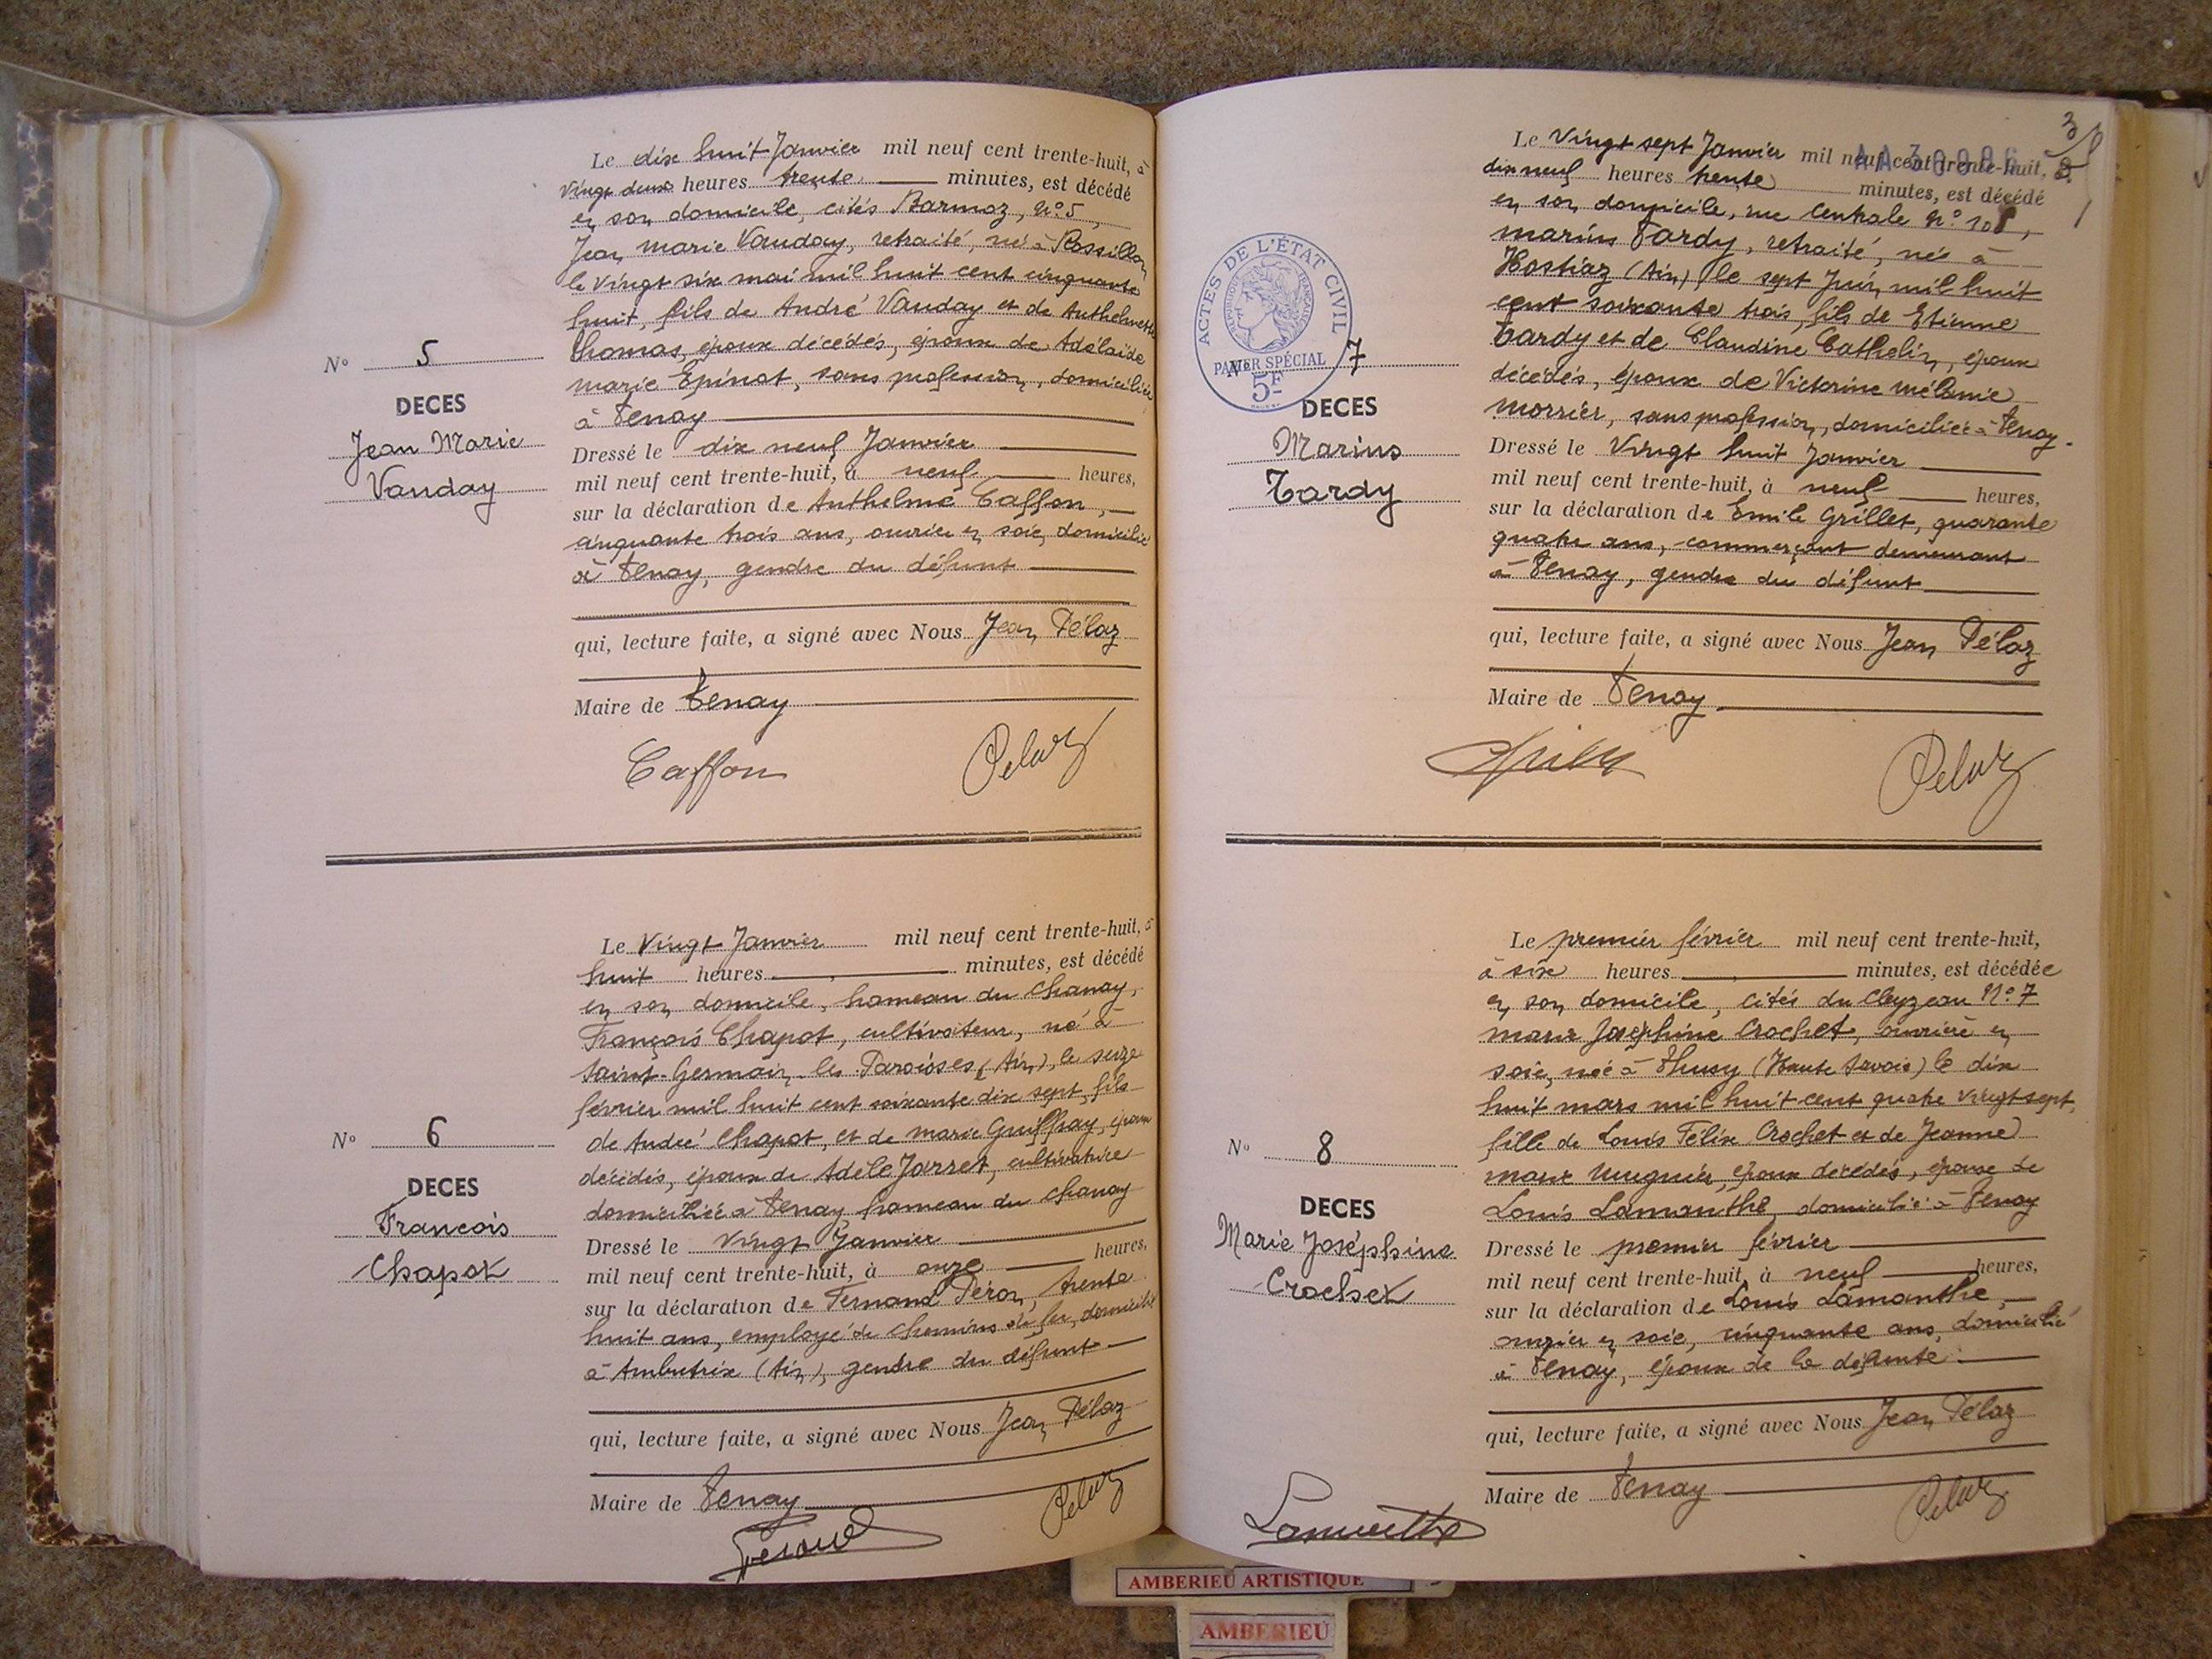 Le dix huit Janvier mil neuf cent trente-huit, à
vingt deux heures trente minutes, est décédé
en son domicile, cités Barmoz, N° 5,
Jean marie Vauday, retraité, né à Rossillon
le vingt six mai mil huit cent cinquante
huit, fils de André Vauday et de Anthelmette
Thomas, époux décédés, époux de Adélaïde
marie Epinat, sans profession, domiciliée
à Tenay
N° 5
DECES
Jean Marie
Vauday
Dressé le dix neuf Janvier
mil neuf cent trente-huit, à neuf heures,
sur la déclaration de Anthelme Caffon,
cinquante trois ans, ouvrier en soie, domicilié
à Tenay, gendre du défunt
qui, lecture faite, a signé avec Nous Jean Pélaz
Maire de Tenay
Caffon Pelaz
Le Vingt Janvier mil neuf cent trente-huit, à
huit heures minutes, est décédé
en son domicile, hameau du Chanay,
François Chapot, cultivateur, né à
Saint-Germain-les-Paroisses (Ain), le seize
février mil huit cent soixante dix sept, fils
de André Chapot, et de marie Guiffray, époux
décédés, époux de Adèle Jarret, cultivatrice
domiciliée à Tenay, hameau du Chanay
N° 6
DECES
François
Chapot
Dressé le vingt Janvier
mil neuf cent trente-huit, à onze heures,
sur la déclaration de Fernand Péron, trente
huit ans, employé de chemins de fer, domicilié
à Ambutrix (Ain), gendre du défunt
qui, lecture faite, a signé avec Nous Jean Pélaz
Maire de Tenay
Pelaz
3
Le Vingt sept Janvier mil neuf cent trente-huit, à
dix neuf heures trente minutes, est décédé
en son domicile, rue Centrale N°
marius Tardy, retraité, né à
Hostiaz (Ain), le sept Juin mil huit
cent soixante trois, fils de Etienne
Tardy et de Claudine Cathelin, époux
décédés, époux de Victorine mélanie
morrier, sans profession, domiciliée à Tenay.
ACTES DE L'ÉTAT CIVIL
RÉPUBLIQUE FRANÇAISE
PAPIER SPÉCIAL
5F
N° 7
DECES
Marius
Tardy
Dressé le Vingt huit Janvier
mil neuf cent trente-huit, à neuf heures,
sur la déclaration de Emile Grillet, quarante
quatre ans, commerçant demeurant
à Tenay, gendre du défunt
qui, lecture faite, a signé avec Nous Jean Pélaz
Maire de Tenay
Pelaz
Le premier février mil neuf cent trente-huit,
à six heures minutes, est décédée
en son domicile, cités du Cleyzeau N° 7
marie Joséphine Crochet, ouvrière en
soie, née à Thusy (Haute Savoie) le dix
huit mars mil huit cent quatre vingt sept,
fille de Louis Félix Crochet et de Jeanne
marie époux décédés, épouse de
Louis Lamanthe, domicilié à Tenay
N° 8
DECES
Marie Joséphine
Crochet
Dressé le premier février
mil neuf cent trente-huit, à neuf heures,
sur la déclaration de Louis Lamanthe,
ouvrier en soie, cinquante ans, domicilié
à Tenay, époux de la défunte
qui, lecture faite, a signé avec Nous Jean Pélaz
Maire de Tenay
Lamanthe Pelaz
AMBERIEU ARTISTIQUE
AMBERIEU